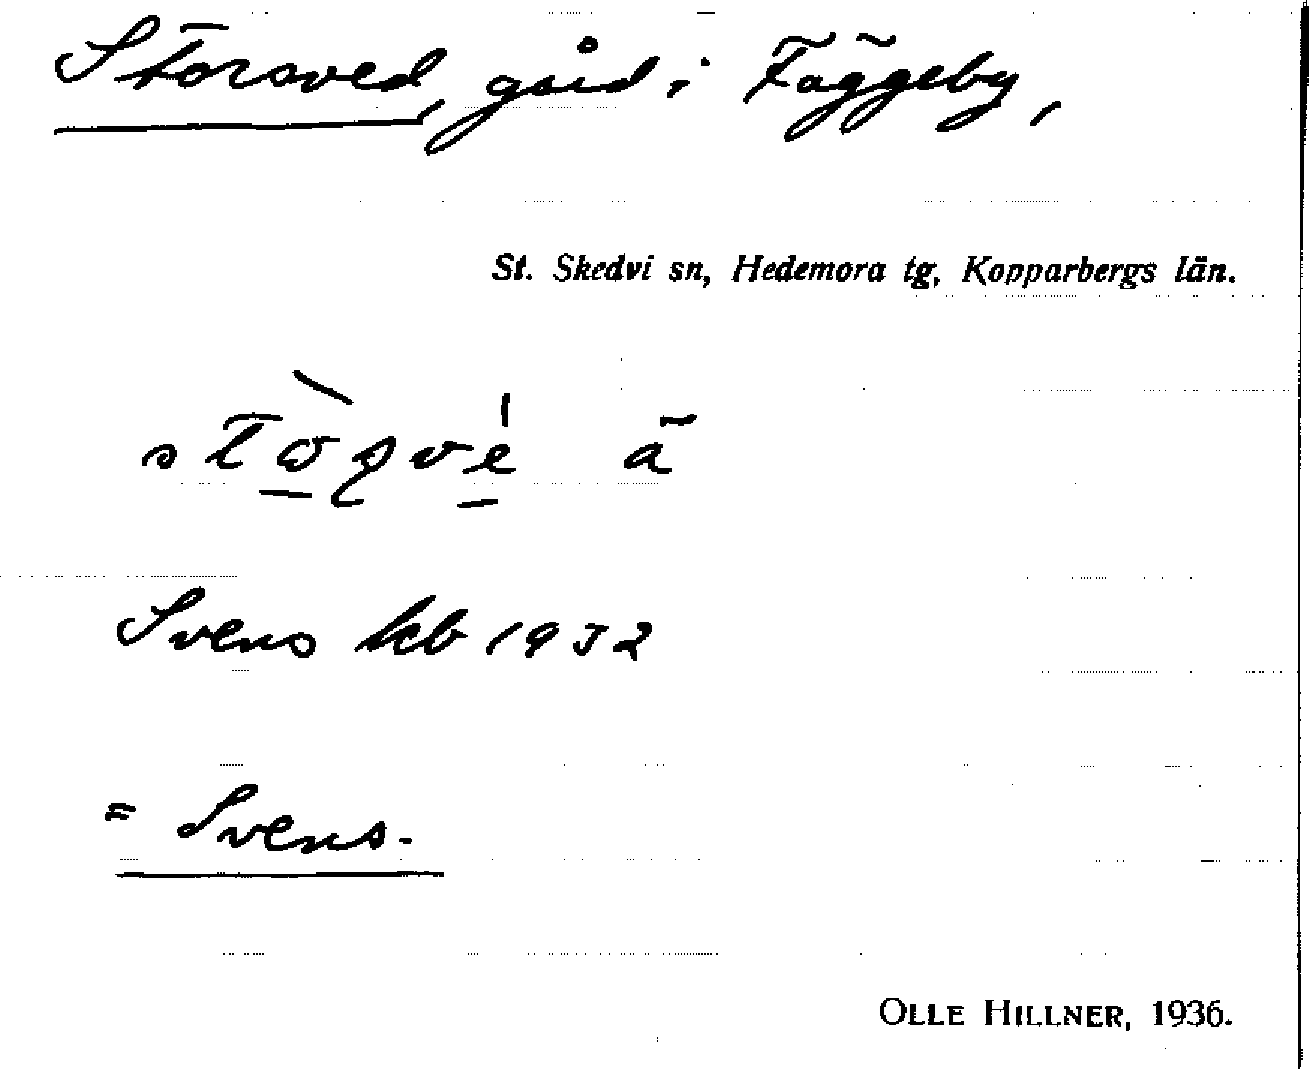 Storsved, gård i Fäggeby,
St. Skedvi sn, Hedemora tg, Kopparbergs län.
Svens kb 1932
= Svens.
OLLE HILLNER, 1936.